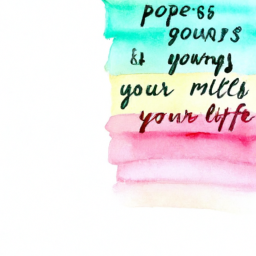 pope·ss
gours
& youngs
your mills
your liffe